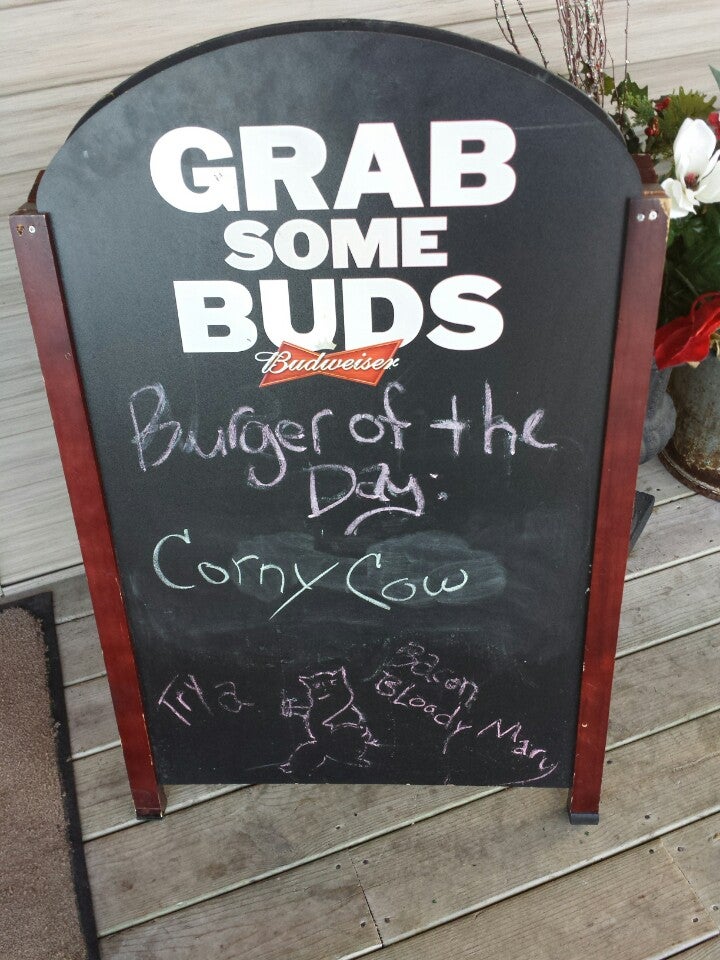 GRAB
SOME
BUDS
Budweiser
Burger of the
Day:
Corny Cow
Try a
Bacon
Bloody Mary